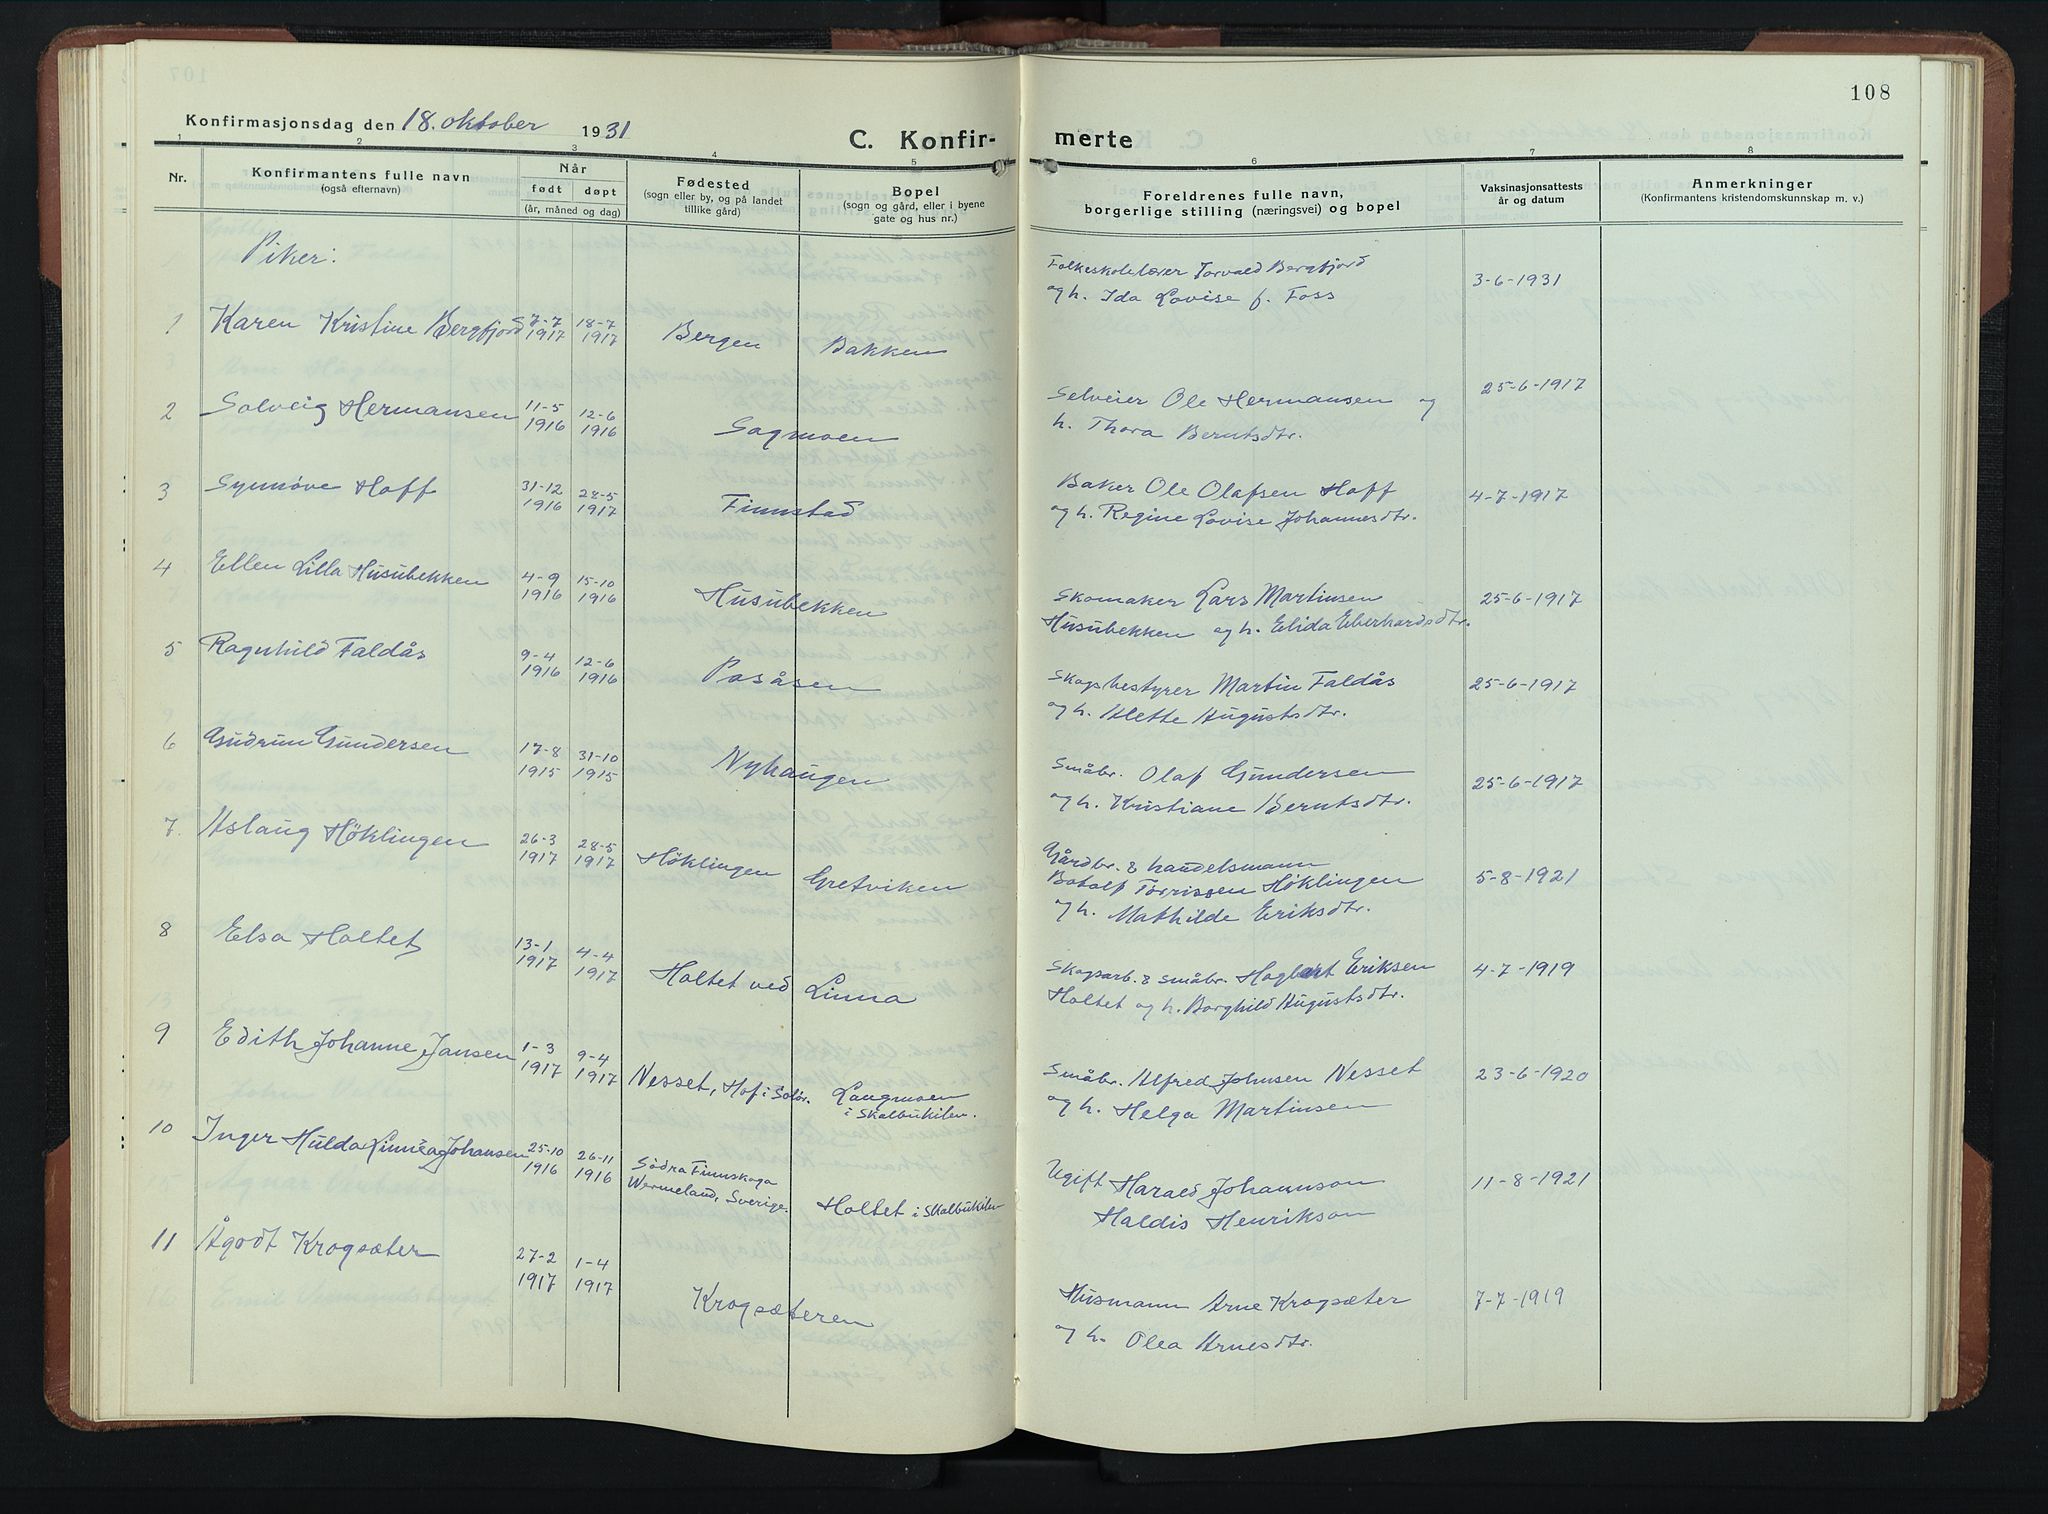 108
Konfirmasjonsdag den 18. oktober 1931
C. Konfir- merte
1 2 3 4 5 6 7 8
Nr.
Konfirmantens fulle navn
(også efternavn)
Når
født døpt
(år, måned og dag)
Fødested
(sogn eller by, og på landet
tillike gård)
Bopel
(sogn og gård, eller i byene
gate og hus nr.)
Foreldrenes fulle navn,
borgerlige stilling (næringsvei) og bopel
Vaksinasjonsattests
år og datum
Anmerkninger
(Konfirmantens kristendomskunnskap m. v.)
Piker:
1 Karen Kristine Bergfjord 7-7 1917 18-7 1917 Bergen Bakken
Folkeskolelærer Torvald Bergfjord
og h. Ida Lovise f. Foss
3-6-1931
2 Solveig Hermansen 11-5 1916 12-6 1916 Sagmoen
Selveier Ole Hermansen og
h. Thora Berntsdtr.
25-6-1917
3 Synnøve Hoff 31-12 1916 28-5 1917 Finnstad
Baker Ole Olafsen Hoff
og h. Regine Lovise Johannesdtr.
4-7-1917
4 Ellen Lilla Husubekken 4-9 1916 15-10 1916 Husubekken
Skomaker Lars Martinsen
Husubekken og h. Elida Eberhardsdtr.
25-6-1917
5 Ragnhild Faldås 9-4 1916 12-6 1916 Posåsen
Skogbestyrer Martin Faldås
og h. Alette Augustsdtr.
25-6-1917
6 Gudrun Gundersen 17-8 1915 31-10 1915 Nyhaugen
Småbr. Olaf Gundersen
og h. Kristiane Berntsdtr.
25-6-1917
7. Aslaug Höklingen 26-3 1917 28-5 1917 Höklingen Gretviken
Gårdbr. & handelsmann
Botolf Torrissen Höklingen
og h. Mathilde Eriksdtr.
5-8-1921
8 Elsa Holtet 13-1 1917 4-4 1917 Holtet ved Linna
Skogsarb. & småbr. Hagbart Eriksen
Holtet og h. Borghild Augustsdtr.
4-7-1919
9 Edith Johanne Jansen 1-3 1917 9-4 1917 Nesset, Hof i Solør. Langmoen
i Skalbukilen.
Småbr. Alfred Johnsen Nesset
og h. Helga Martinsen
23-6-1920
10 Inger Hulda Linnéa Johansen 25-10 1916 26-11 1916 Södra Finnskoga
Wermeland, Sverige. Holtet i Skalbukilen
Ugift Harald Johannson
Haldis Henrikson
11-8-1921
11 Ågodt Krogsæter 27-2 1917 1-4 1917 Krogsæteren
Husmann Arne Krogsæter
og h. Olea Arnesdtr.
7-7-1919